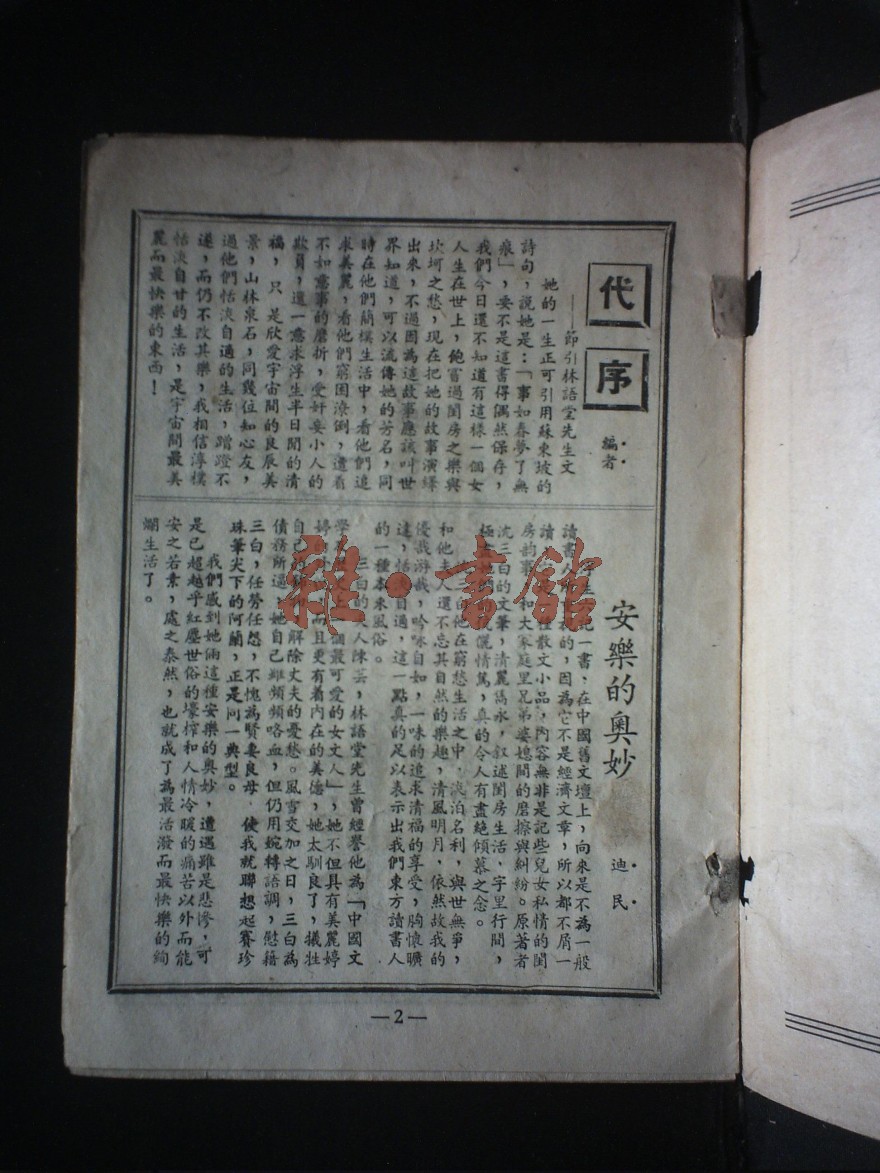 代序
編者
——節引林語堂先生文
她的一生正可引用蘇東坡的
詩句，說她是：「事如春夢了無
痕」，要不是這書得偶然保存，
我們今日還不知道有這樣一個女
人生在世上，飽嘗過閨房之樂與
坎坷之愁，現在把她的故事演繹
出來，不過因為這故事應該叫世
界知道，可以流傳她的芳名，同
時在他們簡樸生活中，看他們追
求美麗，看他們窮困潦倒，遭着
不如意事的磨折，受奸妄小人的
欺負，還一意求浮生半日閒的清
福，只是欣愛宇宙間的良辰美
景，山林泉石，同幾位知心友，
過他們恬淡自適的生活，蹭蹬不
遂，而仍不改其樂，我相信淳樸
恬淡自甘的生活，是宇宙間最美
麗而最快樂的東西！
安樂的奧妙
迪民
一書，在中國舊文壇上，向來是不為一般
讀書人所 的，因為它不是經濟文章，所以都不屑一
讀 散文小品，內容無非是記些兒女私情的閨
房韵事和大家庭里兄弟婆媳間的磨擦與糾紛。原著者
沈三白的文筆，清麗雋永，叙述閨房生活，字里行間，
極 儷情篤，真的令人有盡絕傾慕之念。
三白他在窮愁生活之中，淡泊名利，與世無爭，
和他夫人還不忘其自然的樂趣，清風明月，依然故我的
優哉游哉，吟咏自如，一味的追求清福的享受，胸懷曠
達，恬淡自適，這一點真的足以表示出我們東方讀書人
的一種本來風俗。
三白的夫人陳芸，林語堂先生曾經譽他為「中國文
學 上一個最可愛的女文人」，她不但具有美麗婷
婷的 而且更有着內在的美德，她太馴良了，犧牲
自己 解除丈夫的憂愁。風雪交加之日，三白為
債務所逼，她自己雖頻頻咯血，但仍用婉轉語調，慰藉
三白，任勞任怨，不愧為賢妻良母，使我就聯想起賽珍
珠筆尖下的阿蘭，正是同一典型。
我們感到她倆這種安樂的奧妙，遭遇雖是悲慘，可
是已超越乎紅塵世俗的壞榨和人情冷暖的痛苦以外而能
安之若素，處之泰然，也就成了為最活潑而最快樂的絢
爛生活了。
—2—
雜·書館